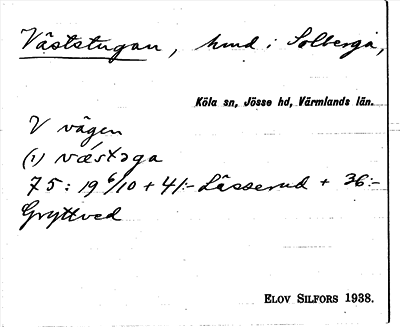 Väststugan, hmd i Solberga,
Köla sn, Jösse hd, Värmlands län.
V vägen
(1) væstəga
75: 19 6/10 + 41:- Lässerud + 36:-
Gryttved
ELOV SILFORS 1938.